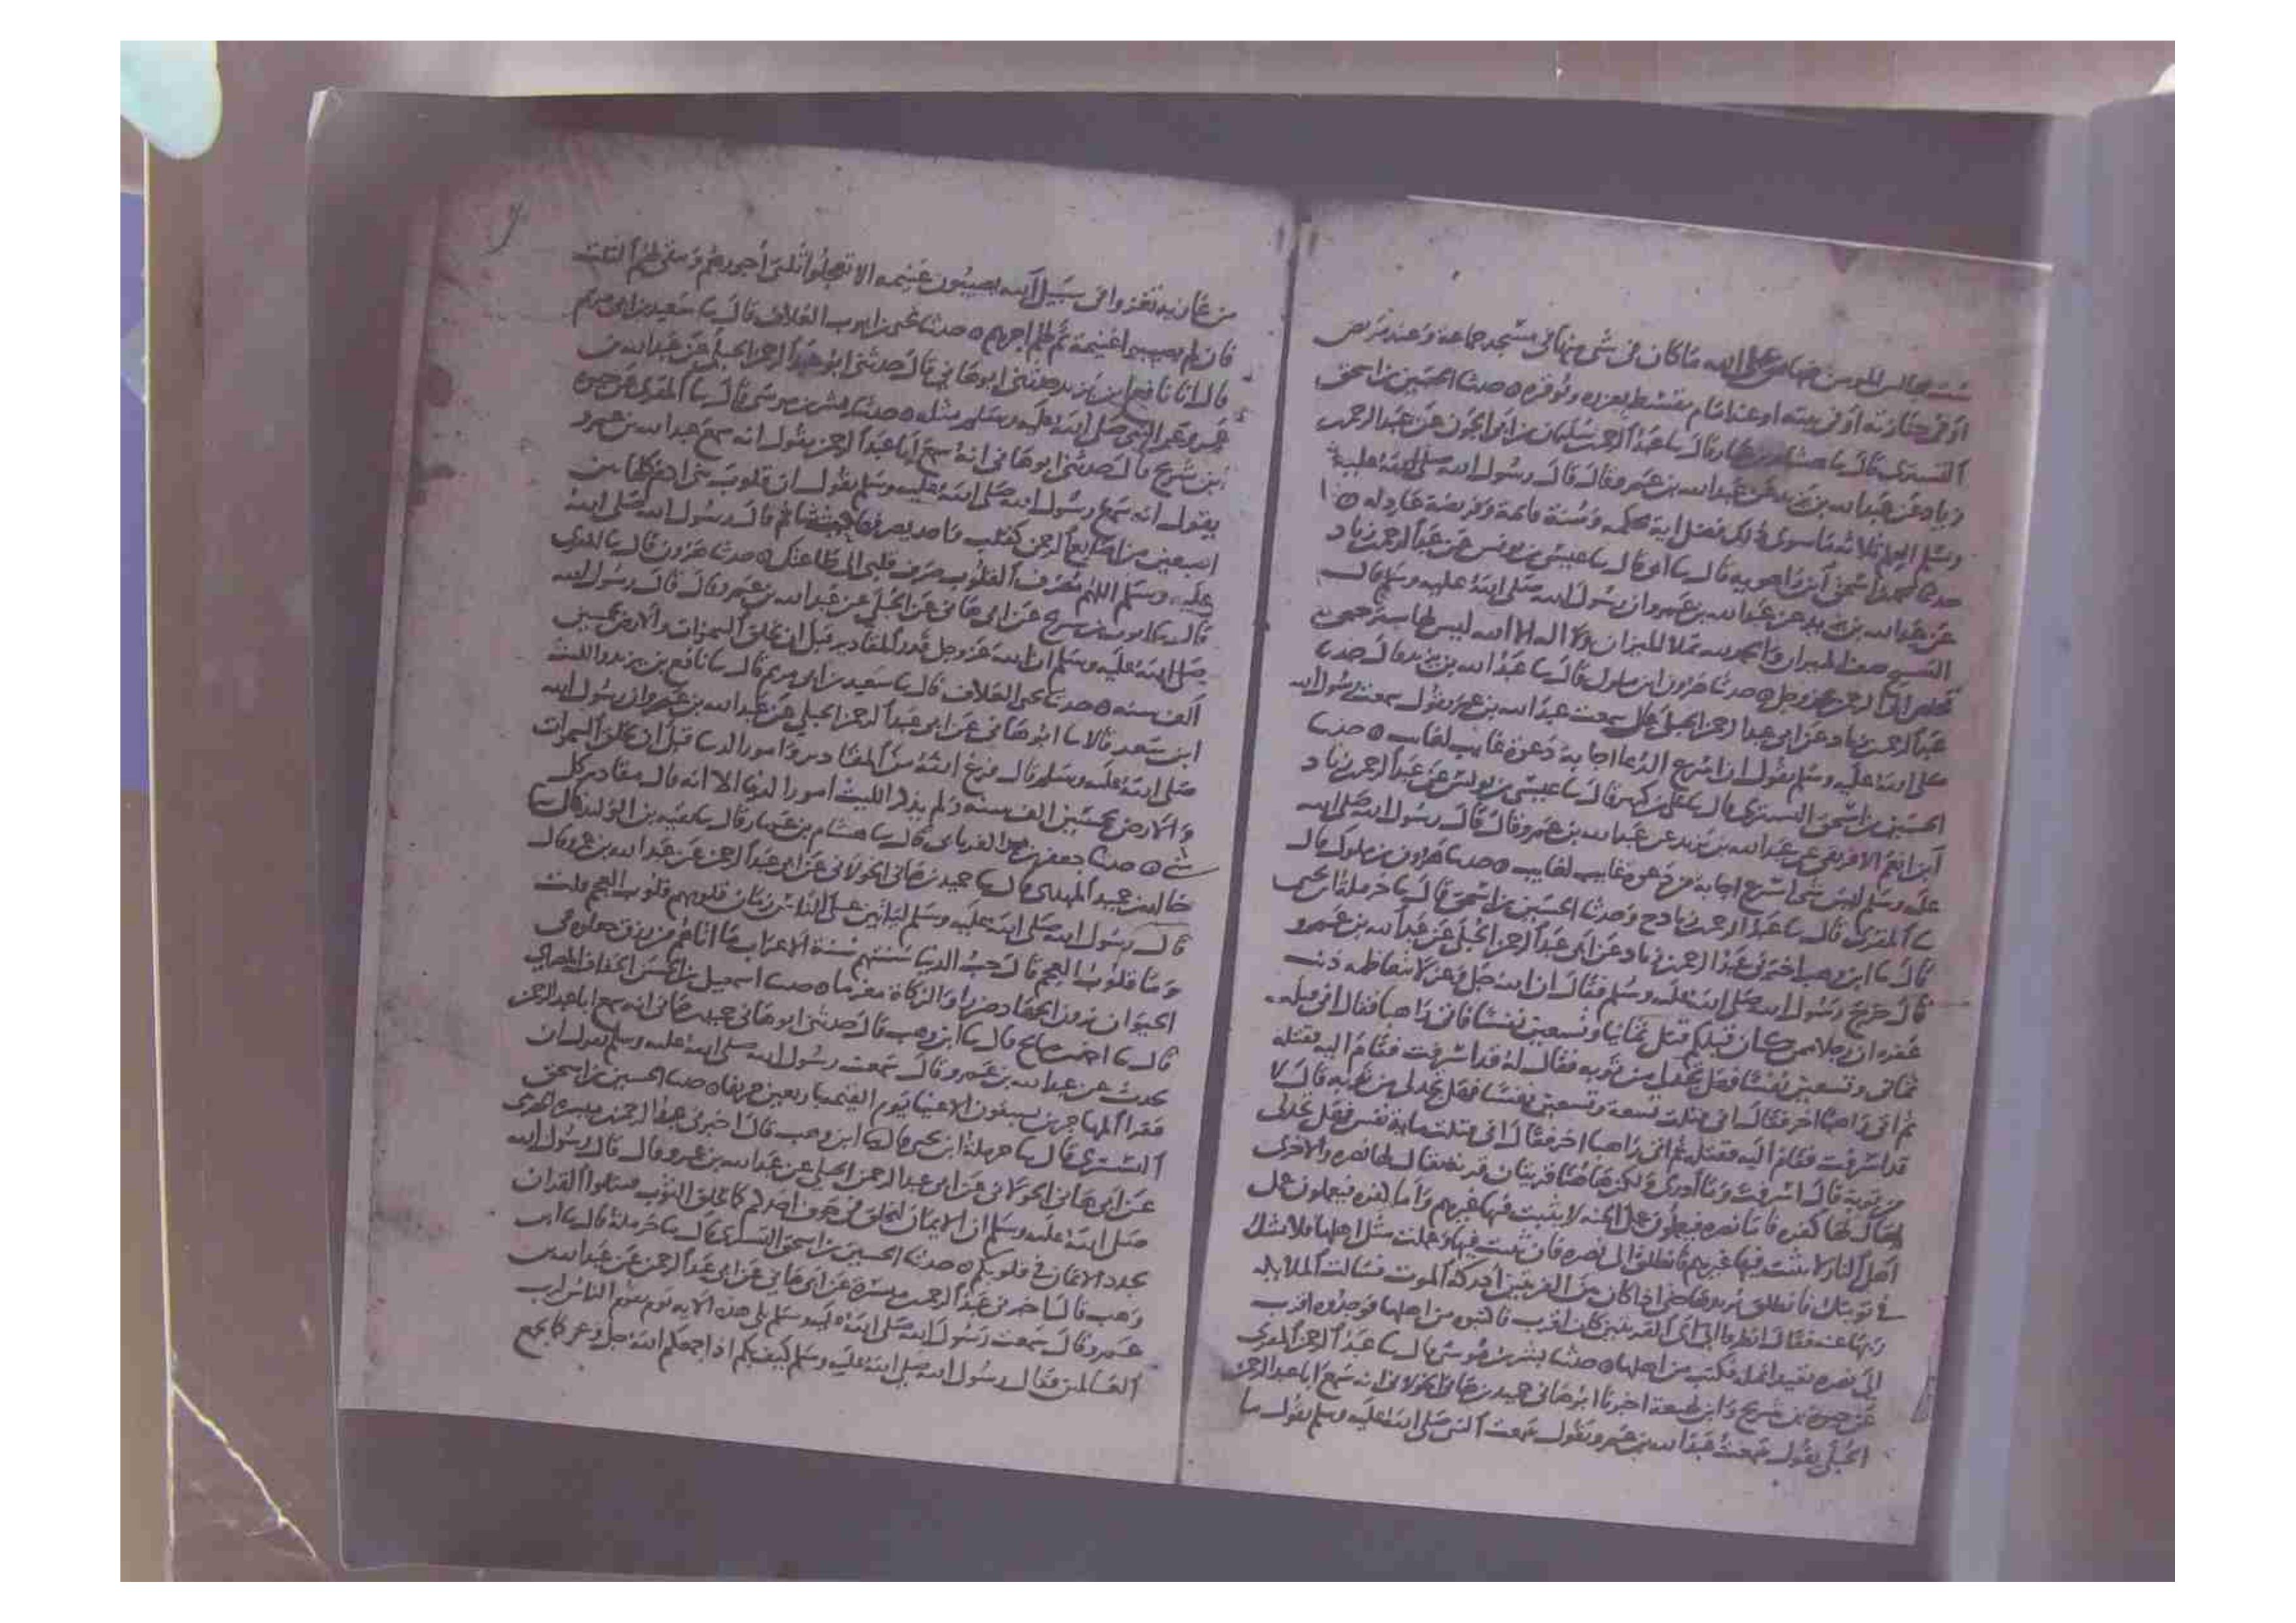 ست مجالس المؤمن ضامن على الله ما كان في شي منها في مسجد جماعة وعند مريض
او في جنازة او في بيته او عند امام مقسط يعزره ويوقره ٥ حدثنا الحسين بن اسحق
التستري قال ثنا هشام بن عمار قال ثنا عبد الرحمن سليمان بن ابي الجون عن عبد الرحمن
زياد عن عبد الله بن يزيد عن عبد الله بن عمرو قال قال رسول الله صلى الله عليه
وسلم العلم ثلاثة ما سوى ذلك فضل اية محكمة وسنة قائمة وفريضة عادلة ٥
حدثنا محمد بن اسحق ابن راهويه قال ثنا ابي قال ثنا عيسى بن يونس عن عبد الرحمن زياد
عن عبد الله بن يزيد عن عبد الله بن عمرو ان رسول الله صلى الله عليه وسلم قال
التسبيح نصف الميزان والحمد لله تملا الميزان ولا اله الا الله ليس لها ستر حتى
تخلص الى الرحمن عز وجل ٥ حدثنا هرون ابن ملول قال ثنا عبد الله بن يزيد قال حدثنا
عبد الرحمن زياد عن ابي عبد الرحمن الحبلي قال سمعت عبد الله بن عمرو يقول سمعت رسول الله
صلى الله عليه وسلم يقول ان اسرع الدعا اجابة دعوة غايب لغايب ٥ حدثنا
الحسين بن اسحق التستري قال ثنا علي بن بحر قال ثنا عيسى بن يونس عن عبد الرحمن زياد
ابن انعم الافريقي عن عبد الله بن يزيد عن عبد الله بن عمرو قال قال رسول الله صلى الله
عليه وسلم ليس شي اسرع اجابة من دعوة غايب لغايب ٥ حدثنا هارون بن ملوك قال
ثنا المقري قال ثنا عبد الرحمن زياد ح وحدثنا الحسين بن اسحق قال ثنا حرملة بن يحيى
قال ثنا ابن وهب اخبرني عبد الرحمن زياد عن ابي عبد الرحمن الحبلي عن عبد الله بن عمرو
قال خرج رسول الله صلى الله عليه وسلم فقال ان الله جل وعز لا يتعاظمه ذنب
غفره ان رجلا ممن كان قبلكم قتل ثمانيا وتسعين نفسا فاتى راهبا فقال اني قتلت
ثماني وتسعين نفسا فهل تجد لي من توبة فقال له قد اسرفت فقام اليه فقتله
ثم اتى راهبا اخر فقال اني قتلت تسعة وتسعين نفسا فهل تجد لي من توبة قال لا
قد اسرفت فقام اليه فقتله ثم اتى راهبا اخر فقال اني قتلت ماية نفس فهل تجد لي
من توبة قال اسرفت وما ادري ولكن هاهنا قريتان قرية يقال لها نصره والاخرى
يقال لها كفره فاما نصره فيعملون عمل الجنة لا يثبت فيها غيرهم واما كفره فيعملون عمل
اهل النار لا يثبت فيها غيرهم فانطلق الى نصره فان ثبت فيها وعملت مثل اهلها فلا شك
في توبتك فانطلق يريدها حتى اذا كان بين القريتين ادركه الموت فسالت الملايكه
ربها عنه فقال انظروا الى اي القريتين كان اقرب فاكتبوه من اهلها فوجدوه اقرب
الى نصره بقيد انملة فكتب من اهلها ٥ حدثنا بشر بن موسى قال ثنا عبد الرحمن المقري
عن حيوة بن شريح وابن لهيعة اخبرنا ابو هاني حميد بن هاني الخولاني انه سمع ابا عبد الرحمن
الحبلي يقول سمعت عبد الله بن عمرو يقول سمعت النبي صلى الله عليه وسلم يقول ما
من غازية تغزوا في سبيل الله يصيبون غنيمة الا تعجلوا ثلثي اجورهم ويبقى لهم الثلث
فان لم يصيبوا غنيمة تم لهم اجرهم ٥ حدثنا يحيى بن ايوب العلاف قال ثنا سعيد بن ابي مريم
قال انا نافع بن يزيد حدثني ابو هاني قال حدثني ابو عبد الرحمن الحبلي عن عبد الله بن
عمرو عن النبي صلى الله عليه وسلم مثله ٥ حدثنا بشر بن موسى قال ثنا المقري عن حيوة
ابن شريح قال حدثني ابو هاني انه سمع ابا عبد الرحمن يقول انه سمع عبد الله بن عمرو
يقول انه سمع رسول الله صلى الله عليه وسلم يقول ان قلوب بني ادم كلها بين
اصبعين من اصابع الرحمن كقلب واحد يصرفها كيف شا ثم قال رسول الله صلى الله
عليه وسلم اللهم مصرف القلوب صرف قلبي الى طاعتك ٥ حدثنا هرون قال ثنا المقري
قال ثنا حيوة بن شريح عن ابي هاني عن الحبلي عن عبد الله بن عمرو قال قال رسول الله
صلى الله عليه وسلم ان الله عز وجل قدر المقادير قبل ان يخلق السموات والارض بخمسين
الف سنه ٥ حدثنا يحيى العلاف قال ثنا سعيد بن ابي مريم قال ثنا نافع بن يزيد والليث
ابن سعد قالا ثنا ابو هاني عن ابي عبد الرحمن الحبلي عن عبد الله بن عمرو ان رسول الله
صلى الله عليه وسلم قال فرغ الله من المقادير وامور الدنيا قبل ان يخلق السموات
والارض بخمسين الف سنه ولم يذكر الليث امور الدنيا الا انه قال مقادير كل
شي ٥ حدثنا جعفر بن محمد الفريابي قال ثنا هشام بن عمار قال ثنا بقيه بن الوليد قال ثنا
خالد بن حميد المهري قال ثنا حميد بن هاني الخولاني عن ابي عبد الرحمن عن عبد الله بن عمرو قال
قال رسول الله صلى الله عليه وسلم لياتين على الناس زمان قلوبهم قلوب العجم قلت
وما قلوب العجم قال حب الدنيا سنتهم سنة الاعراب ما اتاهم من رزق جعلوه في
الحيوان يرون الجهاد ضررا والزكاة مغرما ٥ حدثنا اسمعيل بن الحسن الخفاف المصري
قال ثنا احمد بن صالح قال ثنا ابن وهب قال حدثني ابو هاني حميد بن هاني انه سمع ابا عبد الرحمن
يحدث عن عبد الله بن عمرو قال سمعت رسول الله صلى الله عليه وسلم يقول ان
فقرا المهاجرين يسبقون الاغنيا يوم القيمة باربعين خريفا ٥ حدثنا الحسين بن اسحق
التستري قال ثنا حرملة ابن يحيى قال ثنا ابن وهب قال اخبرني عبد الرحمن ميسرة
عن ابي هاني الخولاني عن ابي عبد الرحمن الحبلي عن عبد الله بن عمرو قال قال رسول الله
صلى الله عليه وسلم ان الايمان ليخلق في جوف احدكم كما يخلق الثوب فسلوا الله ان
يجدد الايمان في قلوبكم ٥ حدثنا الحسين بن اسحق التستري قال ثنا حرملة قال ثنا ابن
وهب قال اخبرني عبد الرحمن ميسرة عن ابي هاني عن ابي عبد الرحمن عن عبد الله بن
عمرو قال سمعت رسول الله صلى الله عليه وسلم تلى هذه الاية يوم يقوم الناس لرب
العالمين فقال رسول الله صلى الله عليه وسلم كيف بكم اذا جمعكم الله جل وعز كما يجمع